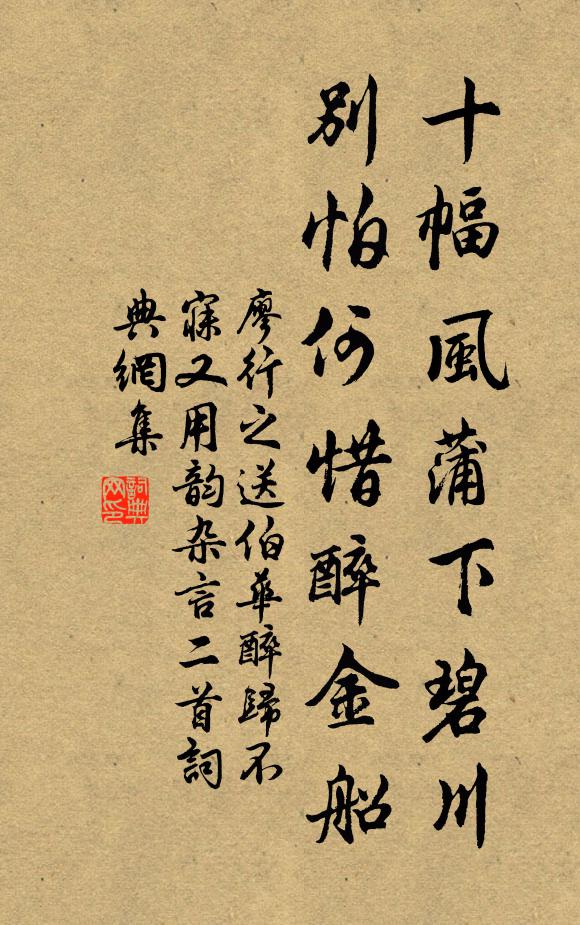 十幅風蒲下碧川
別怕何惜醉金船
廖行之送伯華醉歸不
寐又用韵杂言二首詞
典網集
詞典网印